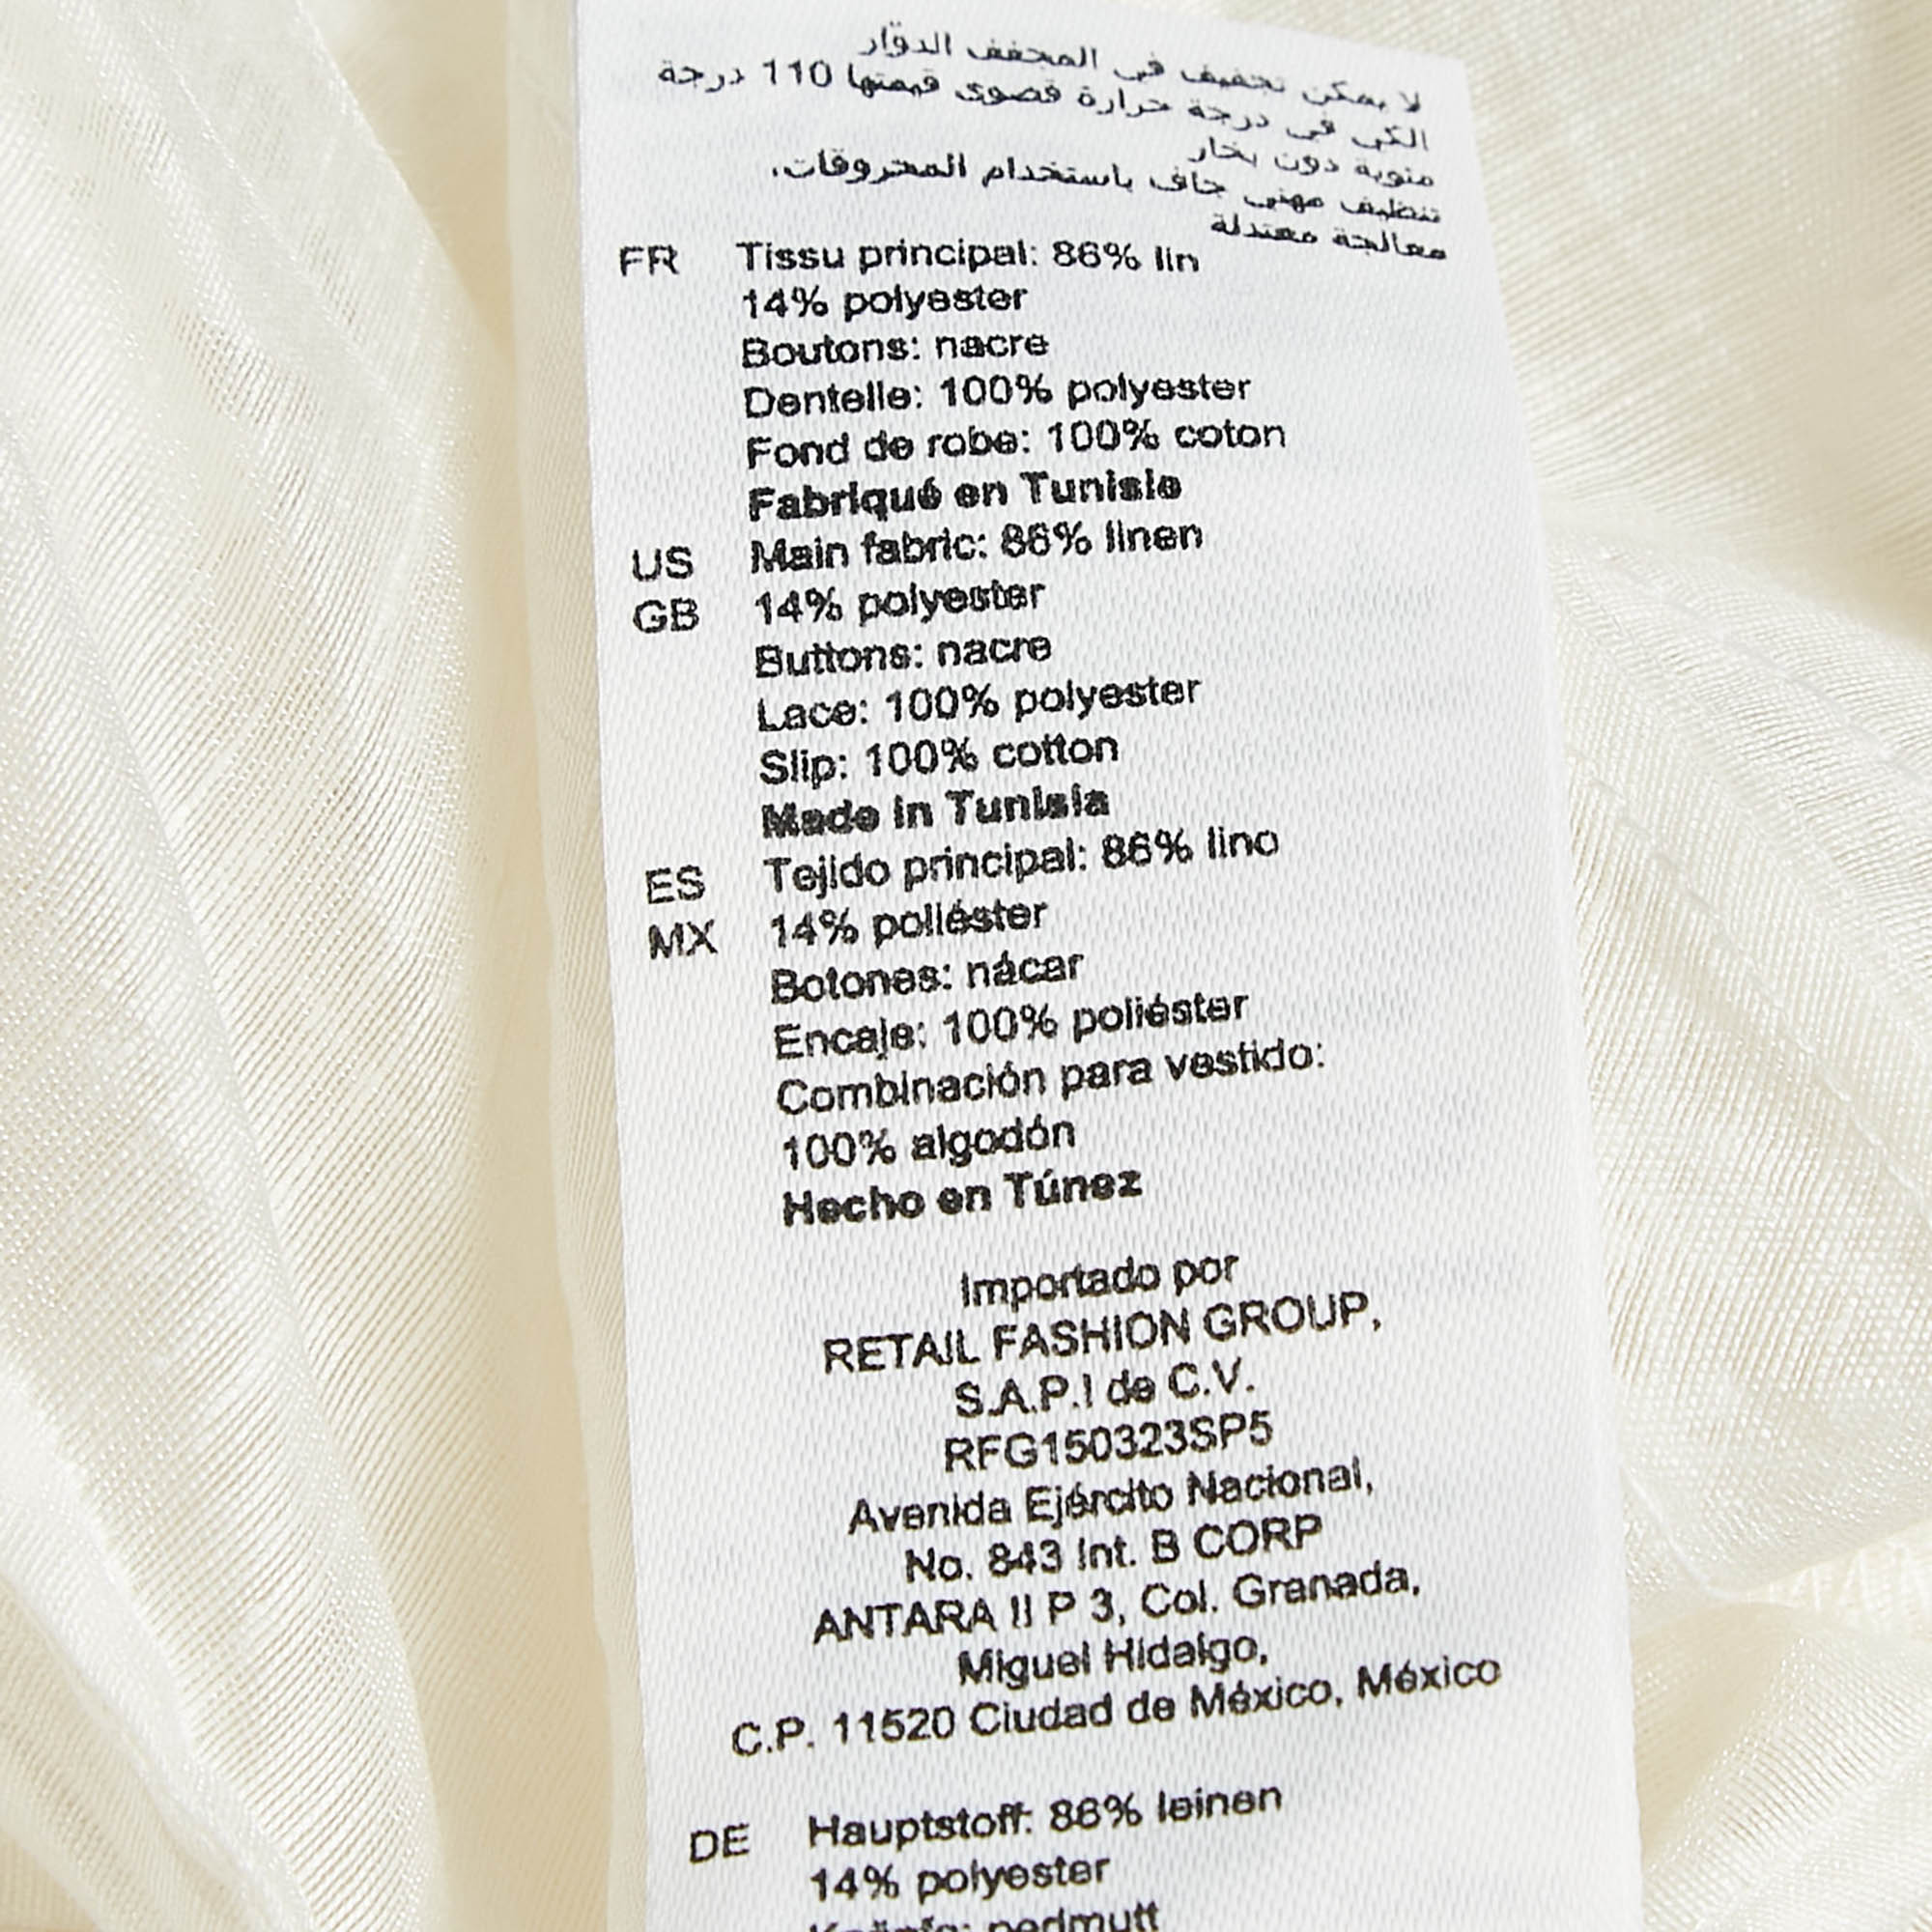 لا يمكن تجفيف في المجفف الدوّار
الكي في درجة حرارة قصوى قيمتها 110 درجة
مئوية دون بخار
تنظيف مهني جاف باستخدام المحروقات.
معالجة معتدلة
FR Tissu principal: 86% lin
14% polyester
Boutons: nacre
Dentelle: 100% polyester
Fond de robe: 100% coton
Fabriqué en Tunisie
US Main fabric: 86% linen
GB 14% polyester
Buttons: nacre
Lace: 100% polyester
Slip: 100% cotton
Made in Tunisia
ES Tejido principal: 86% lino
MX 14% poliéster
Botones: nácar
Encaje: 100% poliéster
Combinación para vestido:
100% algodón
Hecho en Túnez
Importado por
RETAIL FASHION GROUP,
S.A.P.I de C.V.
RFG150323SP5
Avenida Ejército Nacional,
No. 843 Int. B CORP
ANTARA II P 3, Col. Granada,
Miguel Hidalgo,
C.P. 11520 Ciudad de México, México
DE Hauptstoff: 86% leinen
14% polyester